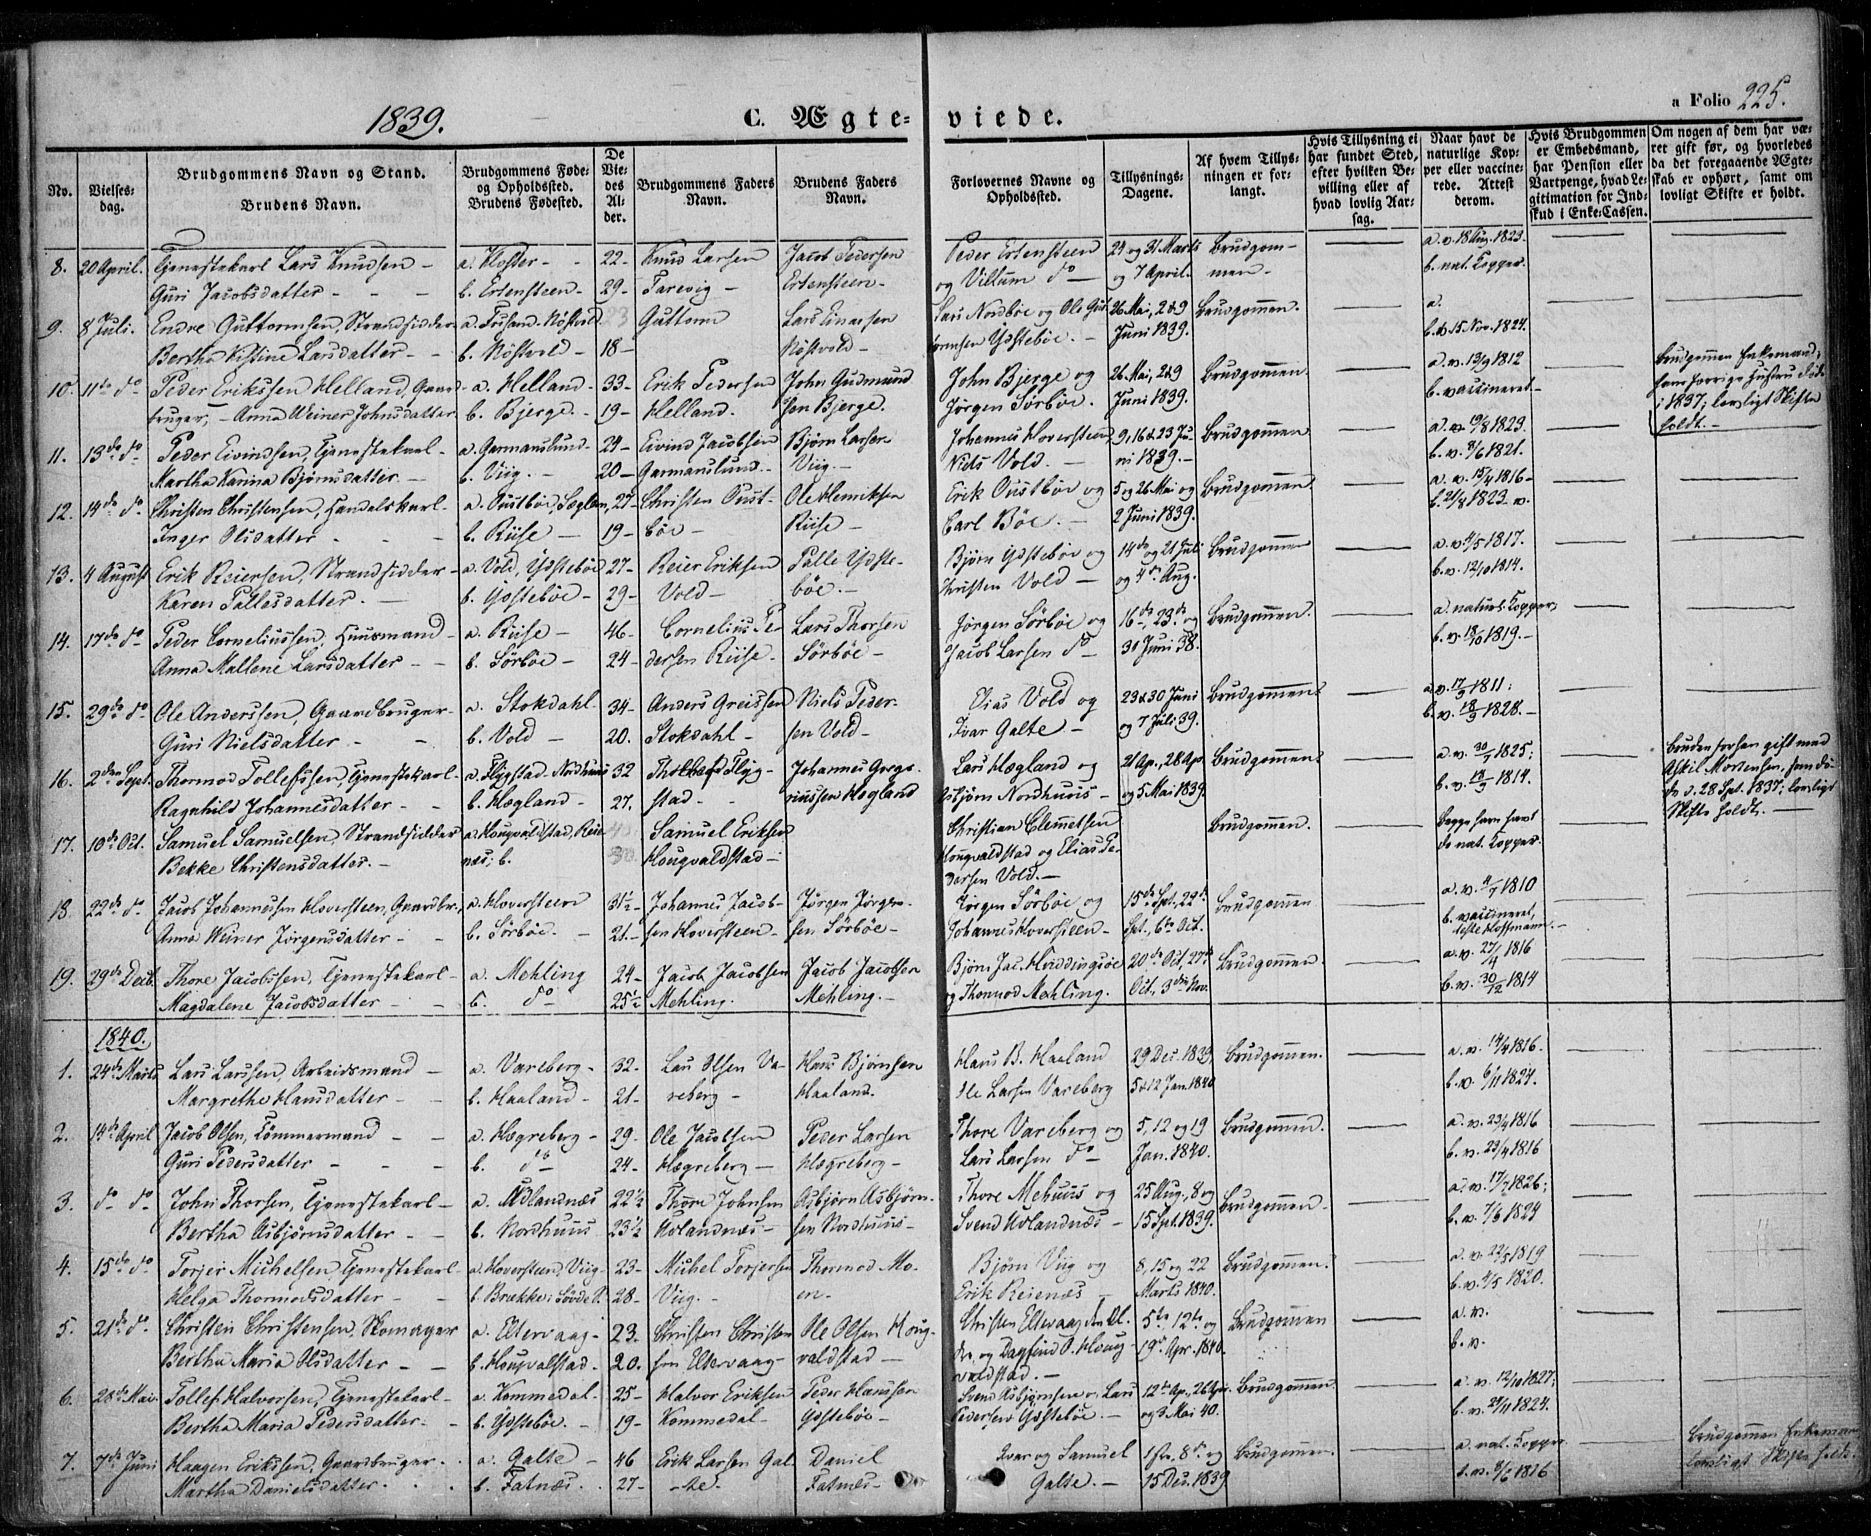 1839.
C. Ægte-
viede.
a Folio 225.
No.
Vielses-
dag.
Brudgommens Navn og Stand.
Brudens Navn.
Brudgommens Føde-
og Opholdssted.
Brudens Fødested.
De
Vie-
des
Al-
der.
Brudgommens Faders
Navn.
Brudens Faders
Navn.
Forlovernes Navne og
Opholdssted.
Tillysnings-
Dagene.
Af hvem Tillys-
ningen er for-
langt.
Hvis Tillysning ei
har fundet Sted,
efter hvilken Be-
villing eller af
hvad lovlig Aar-
sag.
Naar havt de
naturlige Kop-
per eller vaccine-
rede. Attest
derom.
Hvis Brudgommen
er Embedsmand,
har Pension eller
Vartpenge, hvad Le-
gitimation for Ind-
skud i Enke-Cassen.
Om nogen af dem har væ-
ret gift før, og hvorledes
da det foregaaende Ægte-
skab er ophørt, samt om
lovligt Skifte er holdt.
8. 20 April. Tjenestekarl Lars Knudsen - a. Kloster - 22 - Knud Larsen Jacob Pedersen Peder Ertensteen 24 og 31 Marts Brudgom- a. v. 18 Aug. 1823.
Guri Jacobsdatter - b. Ertensteen - 29 - Farevig - Ertensteen - og Villum do og 7 April. men - b. nat. Kopper.
9. 8 Juli. Endre Guttormsen, Strandsidder a. Nøstvold Guttorm Lars Einersen Lars Nordbøe og Ole Gut 26 Mai, 2 & 9 Brudgommen. a.
Bertha Kistine Larsdatter - b. Nøstvold - 18 - Nøstvold - tormsen Ydstebøe. - Juni 1839. b. v. 15 Nov. 1824.
10. 11te do Peder Erikssen Helland, Gaard- a. Helland - 33 - Erik Pedersen John Gudmund John Bjerge og 26 Mai, 2 & 9 Brudgommen. a. v. 13/9 1812 Brudgommen Enkemand;
bruger, - Anna Weiner Johnsdatter b. Bjerge. - 19 - Helland. sen Bjerge. Jørgen Sørbøe. Juni 1839. b. vaccineret - hans forrige Hustru død
i 1837; lovligt Skifte
holdt. -
11. 13de do Peder Eivindsen, Tjenestekarl - a. Garmanslund - 24 - Eivind Jacobsen Bjørn Larsen Johannes Hoversteen 9, 16 & 23 Ju- Brudgommen a. v. 9/8 1823.
Martha Karina Bjørnsdatter - b. Viig. - 20 - Garmanslund. - Viig. - Niels Vold. - ni 1839. - b. v. 8/6 1821.
12. 14de do Christen Christensen, Handelskarl - a. Oustbøe, 27 - Christen Oust- Ole Henriksen Erik Oustbøe og 5 og 26 Mai og Brudgommen. a. v. 15/4 1816 -
Inger Olsdatter - b. Riise - 19 - bøe - Riise - Carl Bøe. - 2 Juni 1839. b. 21/8 1823. v.
13. 4 August Erik Reiersen, Strandsidder - a. Vold, Ydstebøe 27 - Reier Eriksen Palle Ydste- Bjørn Ydstebøe og 14de og 21 Juli Brudgommen a. v. 9/5 1817.
Karen Pallesdatter. - b. Ydstebøe - 29 - Vold - bøe. - Christen Vold - og 4de Aug. b. v. 12/10 1814.
14. 17de do Peder Corneliussen, Huusmand - a. Riise - 46 - Cornelius Pe- Lars Thorsen Jørgen Sørbøe og 16de, 23de og Brudgommen. a. naturl. Kopper
Anna Mallene Larsdatter - b. Sørbøe - 24 - dersen Riise. Sørbøe - Jacob Larsen do 30 Juni 38. b. v. 18/10 1819. -
15. 29de do Ole Anderssen, Gaardbruger - a. Stokdahl - 34 - Anders Greissen Niels Peder- Elias Vold og 23 & 30 Juni Brudgommen. a. v. 17/9 1811:
Guri Nielsdatter - b. Vold - 20. Stokdahl - sen Vold - Ivar Galte - og 7 Juli 39. b. v. 18/9 1828. -
16. 2den Sept. Thormod Tollefssen, Tjenestekarl - a. Flygstad. Nordhuus 32 Flyg- Johannes Grego- Lars Hægland og 21 Ap., 28 Ap Brudgommen. a. v. 30/7 1825; Bruden forhen gift med
Ragnhild Johannesdatter - b. Hægland - 27. stad - riussen Hægland Asbjørn Nordhuus - og 5 Mai 1839. b. v. 13/9 1814. Askil Mortensen, som dø-
de d. 28 Spt. 1837; lovligt
Skifte holdt. -
17. 10de Oct. Samuel Samuelsen, Strandsidder a. Hougvaldstad, Reie Samuel Eriksen Christian Clemetsen Brudgommen. Begge have havt
Bekke Christensdatter. - næs; b. 30. Hougvaldstad - Hougvaldstad og Elias Pe- de nat. Kopper.
dersen Vold. -
18. 22de do Jacob Johannessen Hoversteen, Gaardbr., a. Hoversteen 31½ - Johannes Jacob- Jørgen Jørgen- Jørgen Sørbøe og 15de Spt., 22de Brudgommen a. v. 4/7 1810
Anna Weiner Jørgensdatter - b. Sørbøe. - 21. - sen Hoversteen - sen Sørbøe - Johannes Hoversteen - Spt., 6te Oct. b. vaccineret,
teste Hoffmann. -
19. 29de Decb. Thore Jacobssen, Tjenestekarl - a. Mehling 24 - Jacob Jacobsen Jacob Jacobsen Bjørn Jac. Huddingsøe 20de Oct, 27de Brudgommen. a. v. 27/4 1816
Magdalene Jacobsdatter - b. do 25½ Mehling. Mehling. - og Thormod Mehling. Oct., 3die Nov. b. v. 30/12 1814
1840.
1. 24de Marts Lars Larssen, Arbeidsmand - a. Vareberg - 32. Lars Olsen Va- Hans Bjørnsen Hans B. Haaland 29 Dec. 1839, Brudgommen. a. v. 14/4 1816.
Margrethe Hansdatter - b. Haaland - 21 - reberg - Haaland. Ole Larsen Vareberg 5 & 12 Jan. 1840 b. v. 6/11 1824.
2. 14de April Jacob Olsen, Tømmermand - a. Hægreberg - 29. Ole Jacobsen Peder Larsen Thore Vareberg og 5, 12 og 19 Brudgommen. a. v. 23/4 1816
Guri Pedersdatter - b. do 24 - Hægreberg - Hægreberg - Lars Larsen do Jan. 1840. b. v. 23/4 1816
3. do do John Thorsen, Tjenestekarl - a. Adlandnæs 22½ Thore Johnsen Asbjørn Asbjørn- Thore Mehuus og 25 Aug., 8 og Brudgommen. a. v. 17/7 1826;
Bertha Asbjørnsdatter - b. Nordhuus 23½ Holandnæs - sen Nordhuus - Svend Holandnæs - 15 Spt. 1839. b. v. 7/9 1824
4. 15de do Torjer Michelsen, Tjenestekarl - a. Hoversteen, Viig - 23 - Michel Torjersen Thormod Mo- Bjørn Viig og 8, 15 og 22 Brudgommen. a. v. 22/5 1819
Helga Thormodsdatter - b. Brække 28 - Viig. - en. Erik Reienæs - Marts 1840. b. v. 9/5 1820.
5. 21de do Christen Christensen, Skomager a. Eltervaag - 23. Christen Christen Ole Olsen Houg- Christen Eltervaag den Æl. 5te, 12te og Brudgommen a. v.
Bertha Maria Olsdatter - b. Hougvalstad - 20. sen Eltervaag - valdstad - dre, og Dagfind O. Houg- 19de Apr. 1840. b. v.
valdstad. -
6. 28de Mai. Tollef Halvorsen, Tjenestekarl - a. Kommedal - 25 - Halvor Eriksen Peder Hanssen Svend Asbjørnsen o, Lars 12te Ap., 26 Apr. Brudgommen. a. v. 12/10 1827;
Bertha Maria Pedersdatter. - b. Ydstebøe. - 19 - Kommedal - Ydstebøe - Pedersen Ydstebøe. - og 3 Mai 40. b. v. 21/11 1824.
7. 7de Juni Haagen Erikssen, Gaardbruger. a. Galte - 46 Erik Larsen Gal- Daniel Ivar og Samuel 1ste, 8de og Brudgommen. a. nat. Kopper Brudgommen Enkeman
Martha Danielsdatter. b. Fatnæs. 27 - te. Fatnæs - Galte. - 15 Dec. 1839 b. v. 8/6 1816 lovligt Skifte holdt.